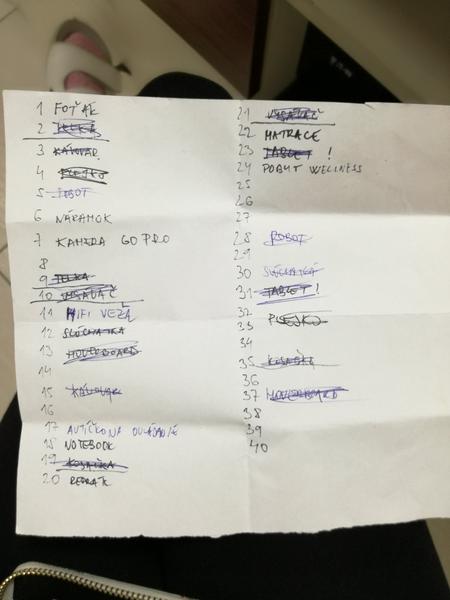 1 FOŤÁK
2 TELKA
3 KÁVOVAR
4 PLEJKO
5 ROBOT
6 NÁRAMOK
7 KAMERA GO PRO
8
9 TELKA
10 VYSÁVAČ
11 HIFI VEŽA
12 SLÚCHATKA
13 HOVERBOARD
14
15 KÁVOVAR
16
17 AUTÍČKO NA OVLÁDANIE
18 NOTEBOOK
19 KOSAČKA
20
21 VYSÁVAČ
22 MATRACE
23 TABLET !
24 POBYT WELLNESS
25
26
27
28 ROBOT
29
30 SLÚCHATKÁ
31 TABLET !
32
33 PLEJKO
34
35 KOSAČKA
36
37 HOVERBOARD
38
39
40